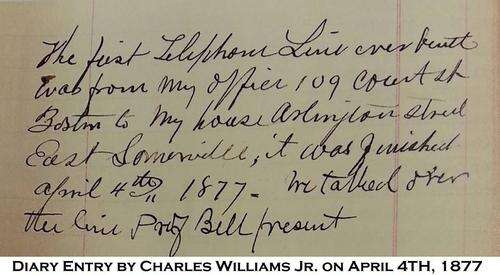 The first Telephone Line ever built
was from my office 109 Court st
Boston to my house Arlington street
East Somerville, it was finished
april 4th, 1877. We talked over
the line Prof Bell present
DIARY ENTRY BY CHARLES WILLIAMS JR. ON APRIL 4TH, 1877